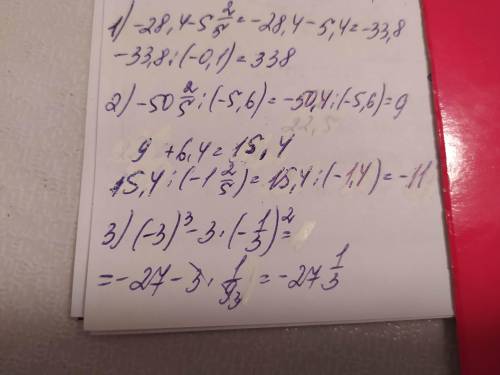 1) -28,4-5 2/5 = -28,4-5,4=-33,8
-33,8:(-0,1)=338
2) -50 2/5 :(-5,6)=-50,4:(-5,6)=9
9 +6,4=15,4
15,4:(-1 2/5)=15,4:(-1,4)=-11
3) (-3)³-3·(-1/3)²=
=-27-3·1/93=-27 1/3